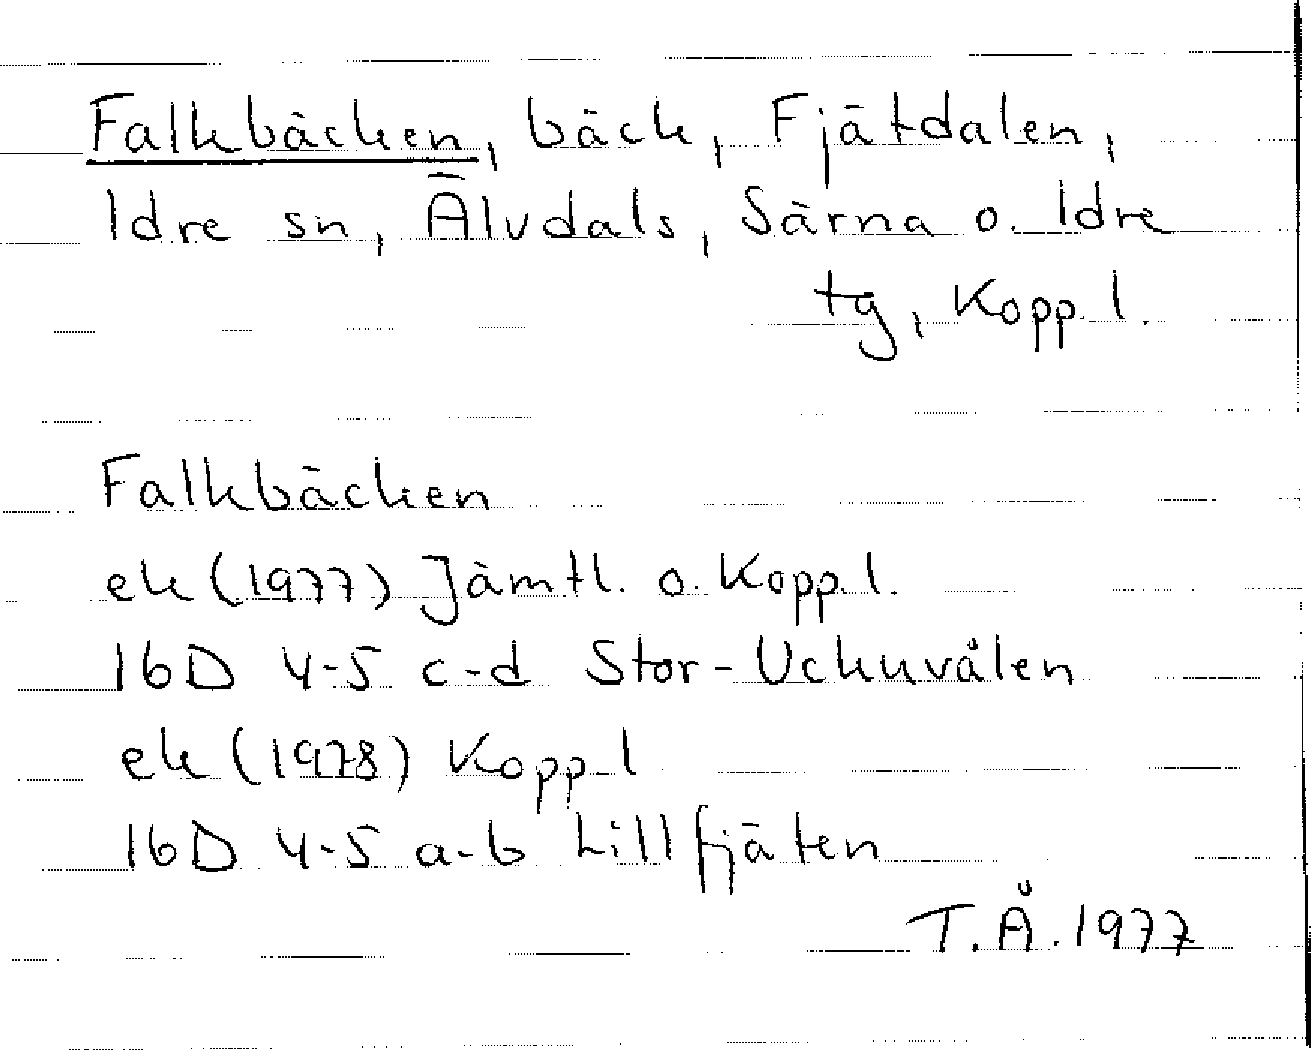 Falkbäcken, bäck, Fjätdalen,
Idre sn, Älvdals, Särna o. Idre
tg, Kopp. l.
Falkbäcken
ek (1977) Jämtl. o. Kopp. l.
16D 4-5 c-d Stor-Uckuvålen
ek (1978) Kopp. l
16D 4-5 a-b Lillfjäten
T.Å. 1977